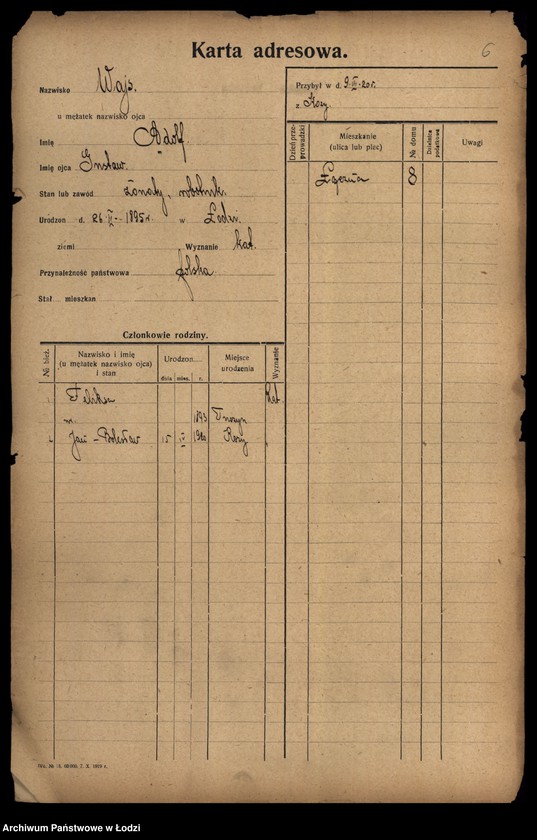 Karta adresowa.
6
Nazwisko Wajs.
u mężatek nazwisko ojca
Imię Adolf
Imię ojca
Stan lub zawód żonaty, robotnik.
Urodzon d. 26 II - 1895 r. w Łodzi.
ziemi Wyznanie kat.
Przynależność państwowa polska
Stał mieszkan
Przybył w d. 9. IV - 20 r.
z
Dzień przeprowadzki
Mieszkanie
(ulica lub plac)
№ domu
Dzielnica podatkowa
Uwagi
8
Członkowie rodziny.
№ bież.
Nazwisko i imię
(u mężatek nazwisko ojca)
i stan
Urodzon
dnia mies. r.
Miejsce
urodzenia
Wyznanie
Kat.
1893
Jan - Bolesław 15
7. X. 1919 r.
Archiwum Państwowe w Łodzi